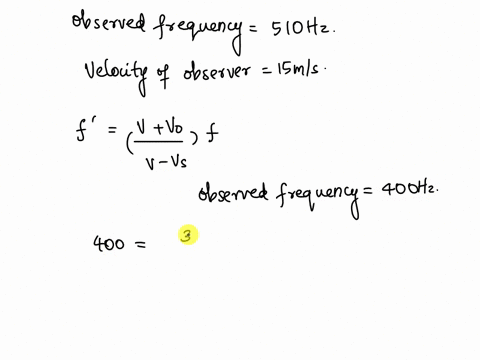 observed frequency = 510Hz.
Velocity of observer = 15m/s.
f' = (V+Vo / V-Vs) f
observed frequency = 400Hz.
400 = 3